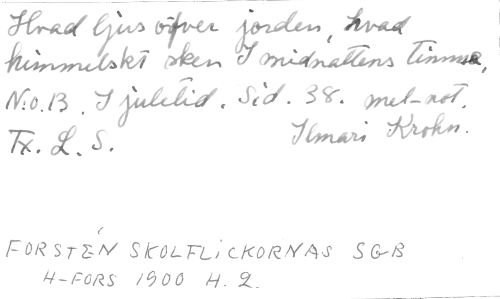 Hvad ljus öfver jorden, hvad
himmelskt sken I midnattens timma,
N:o.13. I juletid. Sid. 38. mel-not.
Ilmari Krohn.
Tx. L. S.
FORSTÉN SKOLFLICKORNAS SGB
H-FORS 1900 H. 2.